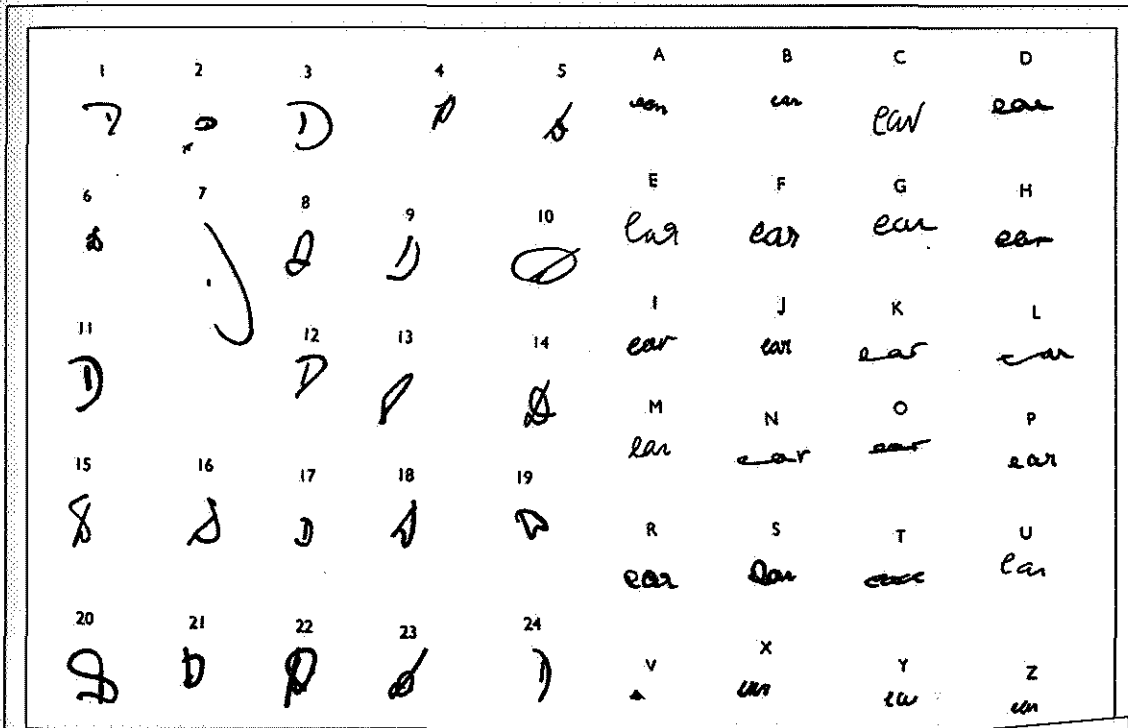 1 2 3 4 5
D D D D D
6 7 8 9 10
D D D D D
11 12 13 14
D D D D
15 16 17 18 19
D D D D D
20 21 22 23 24
D D D D D
A B C D
ear ear ear ear
E F G H
ear ear ear ear
I J K L
ear ear ear ear
M N O P
ear ear ear ear
R S T U
ear ear ear ear
V X Y Z
ear ear ear